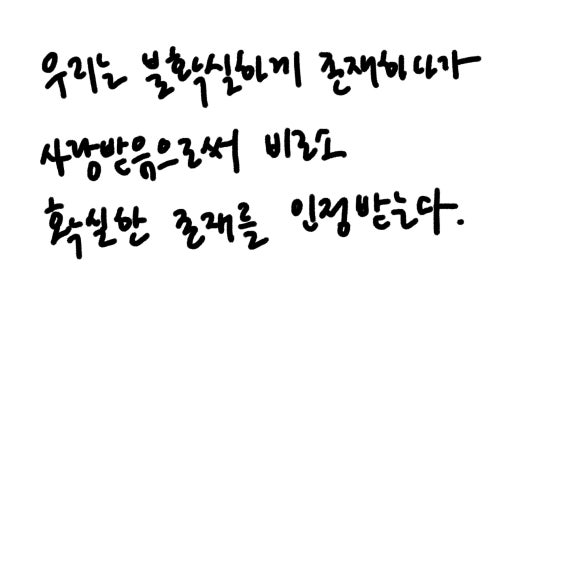 우리는 불확실하게 존재하다가
사랑받음으로써 비로소
확실한 존재를 인정받는다.